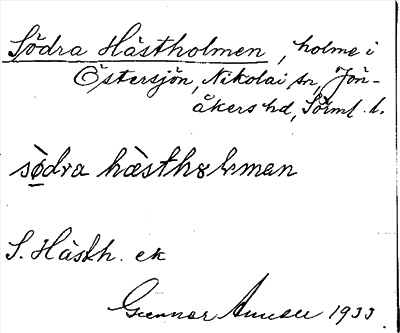 Södra Hästholmen, holme i
Östersjön, Nikolai sn, Jön-
åkers hd, Sörml. l.
södra hàsthɷlman
S. Hästh. ek
Gunnar 1933